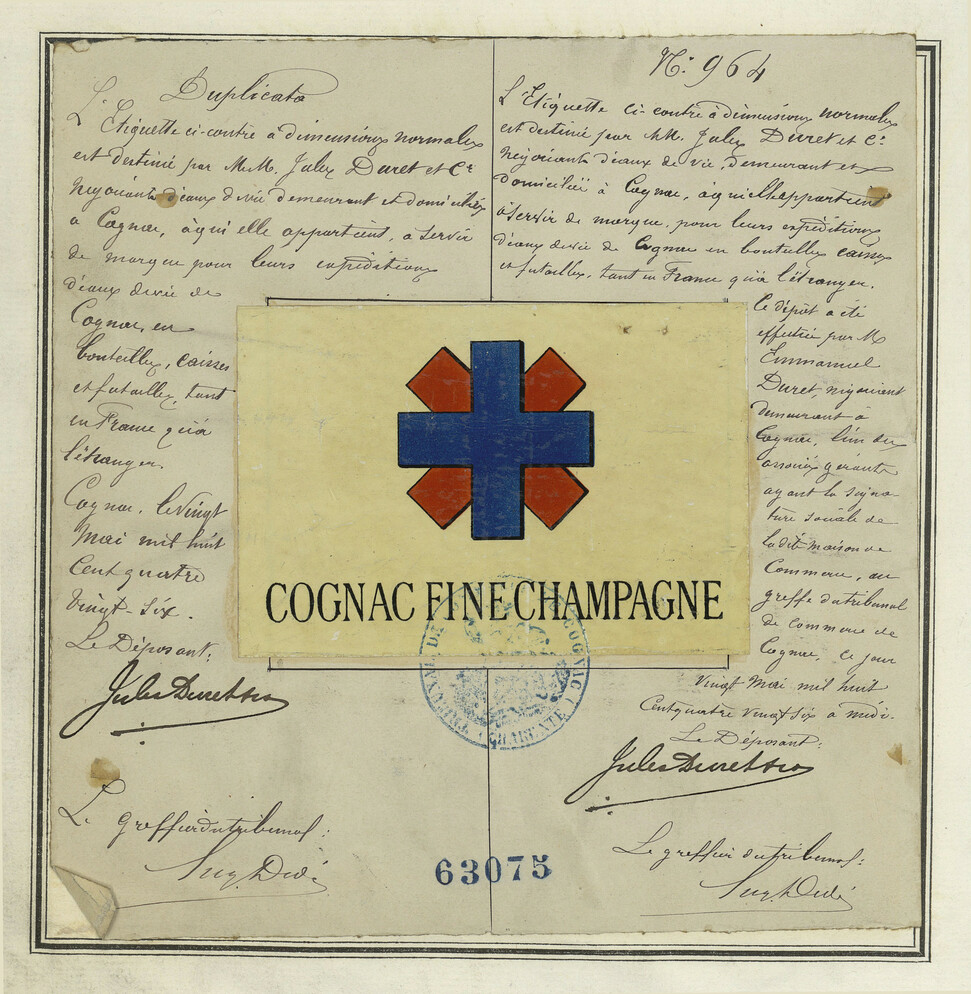 Duplicata
L'Etiquette ci-contre à dimensions normales
est destinée par M.M. Jules Duret et Cie
Négociants d'eaux de vie demeurant et domiciliés
à Cognac, à qui elle appartient, à servir
de marque pour leurs expéditions
d'eaux de vie de
Cognac, en
bouteilles, caisses
et futailles, tant
en France qu'à
l'étranger.
Cognac, le vingt
Mai mil huit
Cent quatre
Vingt-Six.
Le Déposant:
Jules Duret & Cie
Le greffier du tribunal:
N° 964
L'Etiquette ci-contre à dimensions normales
est destinée par MM. Jules Duret et Cie
Négociants d'eaux de vie, demeurant et
domiciliés à Cognac, à qui elle appartient
à servir de marque, pour leurs expéditions
d'eaux de vie de Cognac en bouteilles caisses
et futailles, tant en France qu'à l'étranger.
Le dépôt a été
effectué par M
Emmanuel
Duret, négociant
demeurant à
Cognac, l'un des
associés gérants
ayant la signa-
ture sociale de
la dite maison de
Commerce, au
greffe du tribunal
de Commerce de
Cognac, ce jour
vingt Mai mil huit
Cent quatre vingt six à midi.
Le Déposant:
Jules Duret & Cie
Le greffier du tribunal:
COGNAC FINE CHAMPAGNE
TRIBUNAL DE COMMERCE DE COGNAC
(CHARENTE)
63075